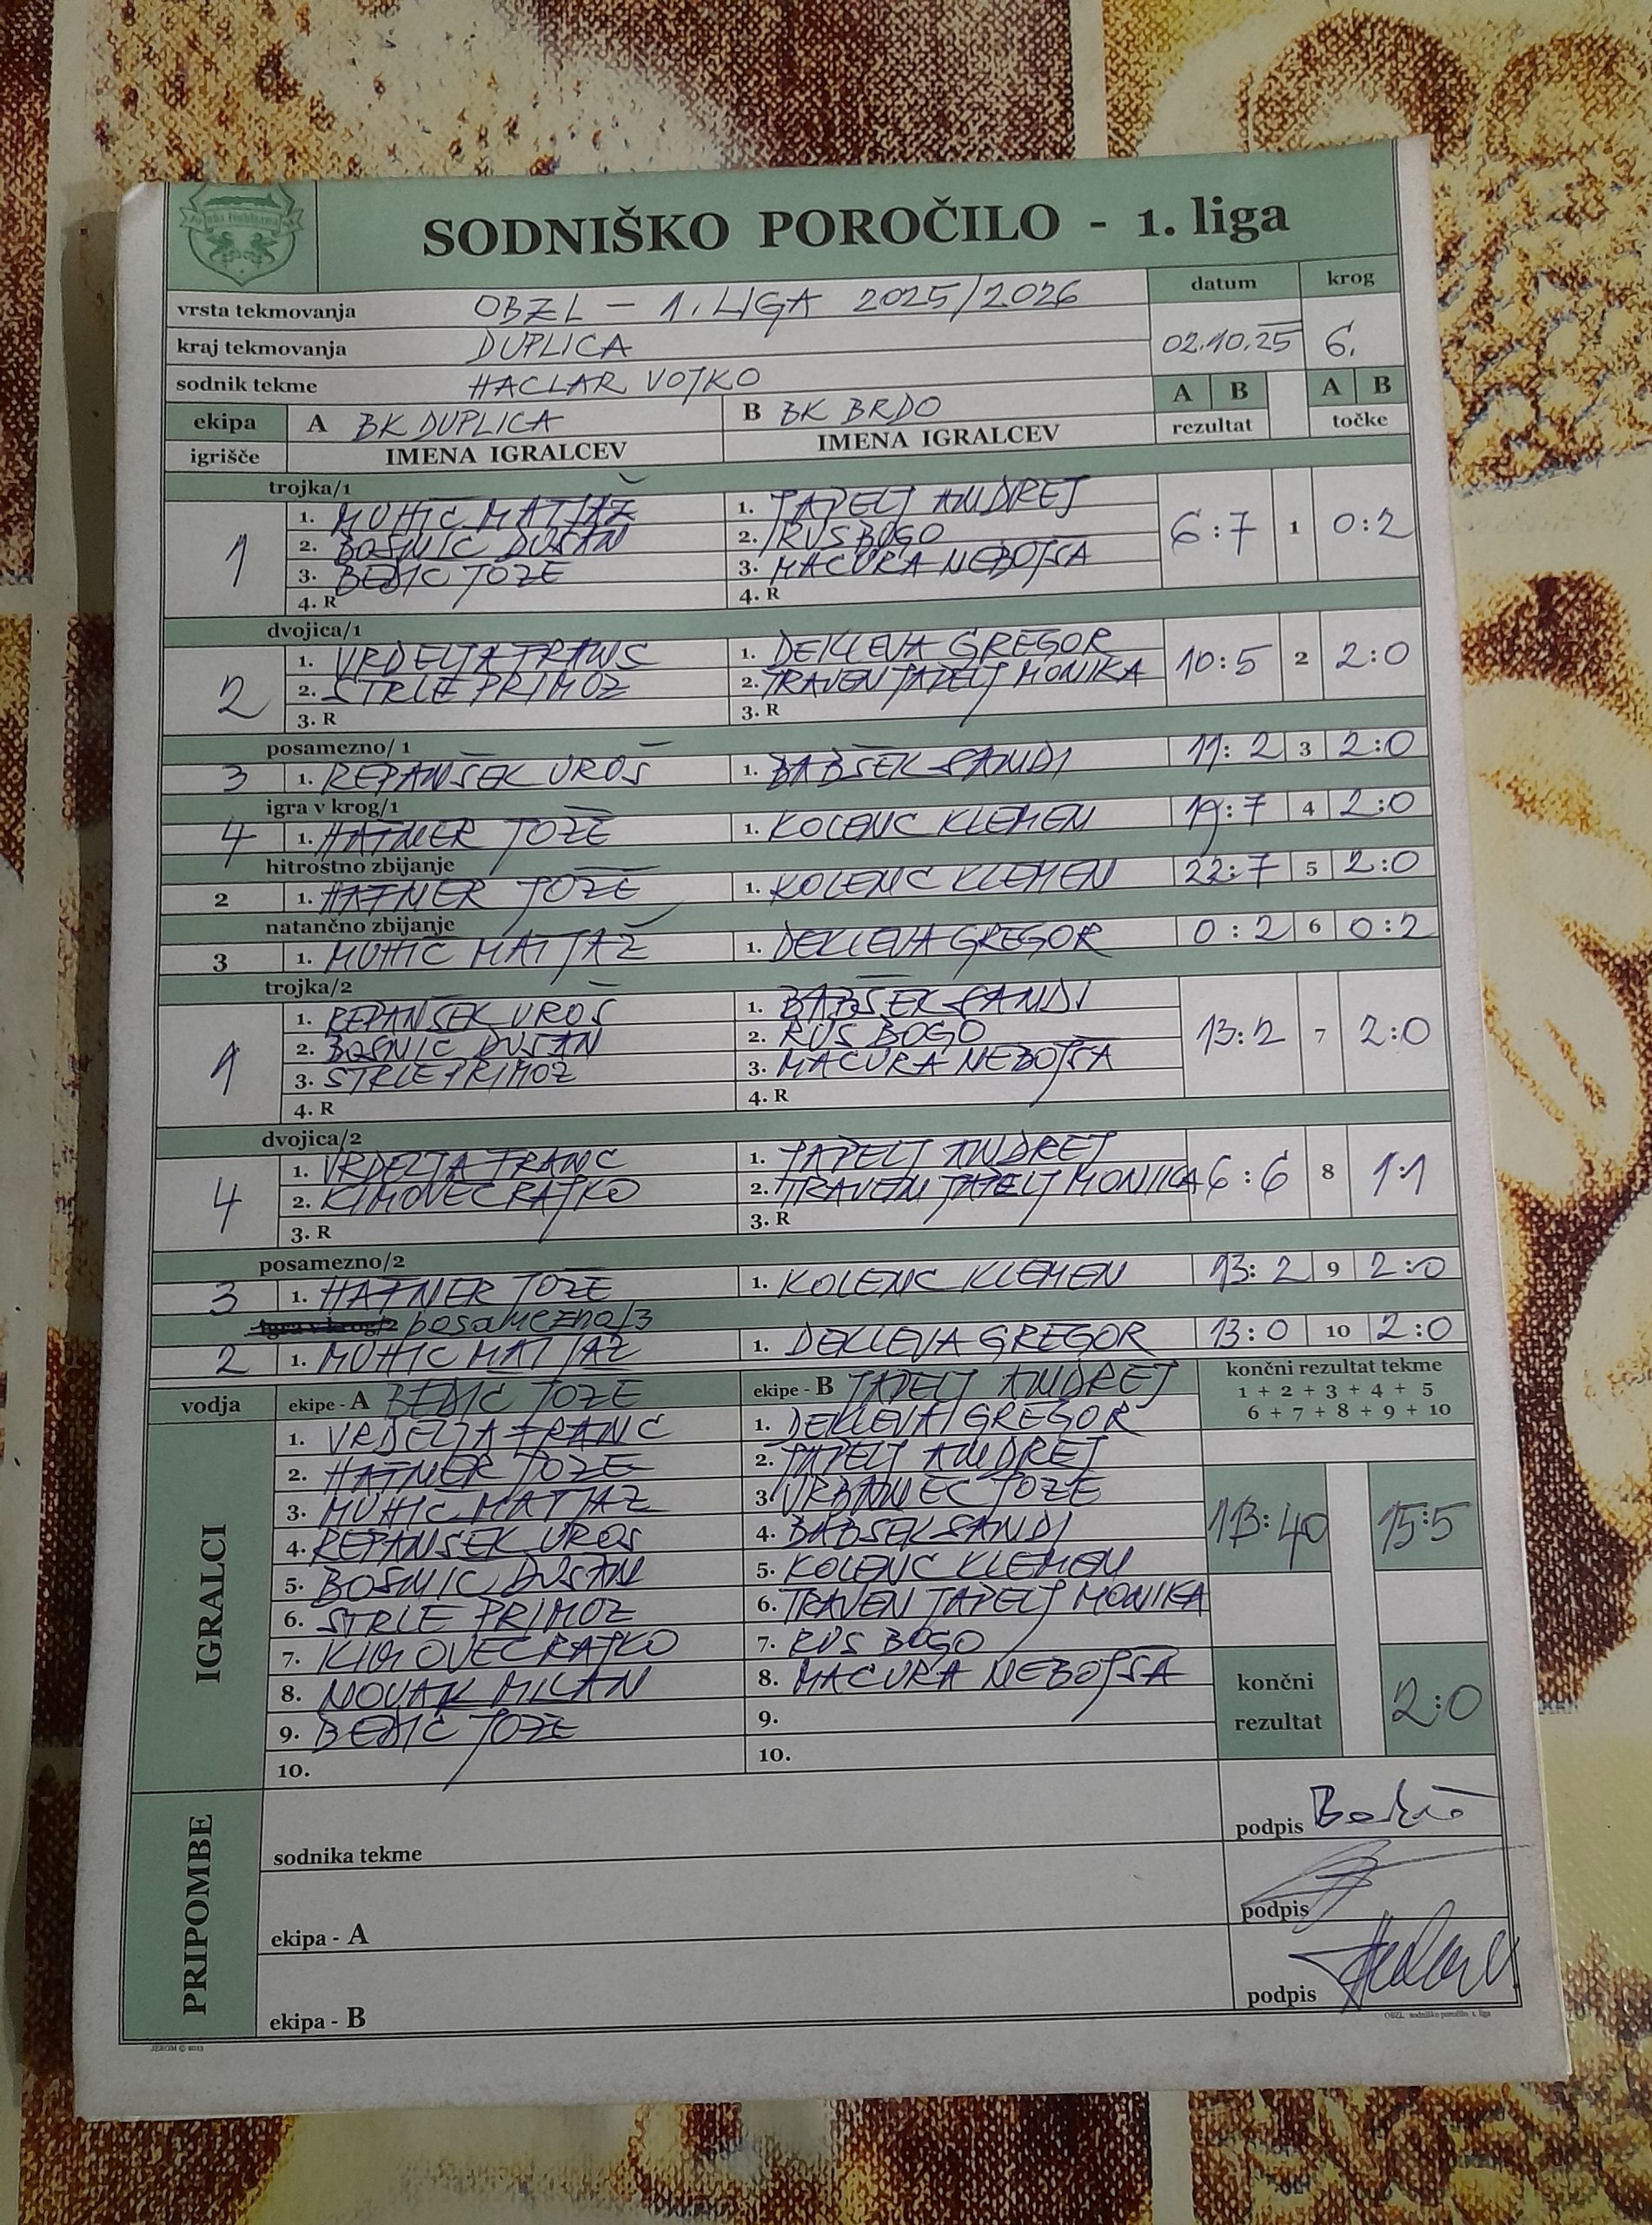 SODNIŠKO POROČILO - 1. liga
vrsta tekmovanja OBZL - 1. LIGA 2025/2026 datum krog
kraj tekmovanja DUPLICA 02.10.25 6.
sodnik tekme HACLAR VOJKO A B A B
ekipa A BK DUPLICA B BK BRDO rezultat točke
igrišče IMENA IGRALCEV IMENA IGRALCEV
trojka/1
1 1. MUHIČ MATJAŽ 1. JAPELJ ANDREJ 6:7 1 0:2
2. BOSNIČ DUŠAN 2. RUS BOGO
3. BEDIČ JOŽE 3. MACURA NEBOJŠA
4. R 4. R
dvojica/1
2 1. VRDELJA FRANC 1. DEKLEVA GREGOR 10:5 2 2:0
2. STRLE PRIMOŽ 2. TRAVEN JAPELJ MONIKA
3. R 3. R
posamezno/ 1
3 1. REPANŠEK UROŠ 1. BABŠEK SANDI 11:2 3 2:0
igra v krog/1
4 1. HAFNER JOŽE 1. KOLENC KLEMEN 19:7 4 2:0
hitrostno zbijanje
2 1. HAFNER JOŽE 1. KOLENC KLEMEN 22:7 5 2:0
natančno zbijanje
3 1. MUHIČ MATJAŽ 1. DEKLEVA GREGOR 0:2 6 0:2
trojka/2
1 1. REPANŠEK UROŠ 1. BABŠEK SANDI 13:2 7 2:0
2. BOSNIC DUŠAN 2. RUS BOGO
3. STRLE PRIMOŽ 3. MACURA NEBOJŠA
4. R 4. R
dvojica/2
4 1. VRDELJA FRANC 1. JAPELJ ANDREJ 6:6 8 1:1
2. KIMOVEC RAJKO 2. TRAVEN JAPELJ MONIKA
3. R 3. R
posamezno/2
3 1. HAFNER JOŽE 1. KOLENC KLEMEN 13:2 9 2:0
igra v krog/2 posamezno/3
2 1. MUHIČ MATJAŽ 1. DEKLEVA GREGOR 13:0 10 2:0
vodja ekipe - A BEDIČ JOŽE ekipe - B JAPELJ ANDREJ končni rezultat tekme
1 + 2 + 3 + 4 + 5
6 + 7 + 8 + 9 + 10
IGRALCI
1. VRDELJA FRANC 1. DEKLEVA GREGOR
2. HAFNER JOŽE 2. JAPELJ ANDREJ
3. MUHIČ MATJAŽ 3. VRBANEC JOŽE
4. REPANŠEK UROŠ 4. BABŠEK SANDI 113:40 15:5
5. BOSNIC DUŠAN 5. KOLENC KLEMEN
6. STRLE PRIMOŽ 6. TRAVEN JAPELJ MONIKA
7. KIMOVEC RAJKO 7. RUS BOGO
8. NOVAK MILAN 8. MACURA NEBOJŠA končni
9. BEDIČ JOŽE 9. rezultat 2:0
10. 10.
PRIPOMBE
sodnika tekme podpis
ekipa - A podpis
ekipa - B podpis
OBZL sodniško poročilo 1. liga
JEROM © 2013